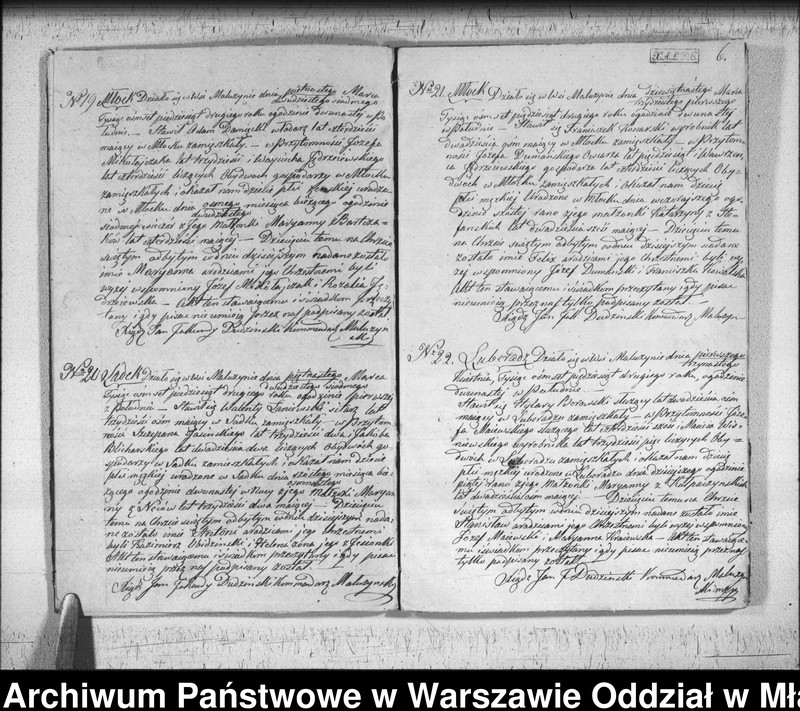 No 19 Młock Działo się w Wsi Malużynie dnia piętnastego Marca
dwudziestego siódmego
Tysiąc ośmset pięćdziesiąt drugiego roku o godzinie dwunastej w po-
łudnie. — Stawił Adam włodarz lat czterdzieści
mający w Młocku zamięszkały. — w Przytomności Józefa
Mikołajczaka lat trzydzieści i Wojciecha Jędrzejewskiego
lat czterdzieści liczących Obydwóch gospodarzy w Młocku
zamięszkałych i okazał nam dziecię płci żeńskiej urodzo-
ne w Młocku dnia ósmego miesiąca bieżącego o godzinie
dwudziestego
siódmej wieczór z jego małżonki Maryanny z
lat czterdzieści mającej — Dziecięciu temu na Chrzcie
świętym odbytym w dniu dzisiejszym nadane zostało
imie Maryanna a rodzicami jego chrzestnemi byli
wyżej wspomniony Józef Mikołajczak i Rozalia Ję-
drzejewska — Akt ten stawającemu i świadkom przeczy-
tany i gdy pisać nieumieją przez nas podpisany został
Xiądz Jan Dudziński Kommendarz Malużyn-
ski
No 20 Sadek Działo się w Wsi Malużynie dnia piętnastego Marca
dwudziestego siódmego
Tysiąc ośmset pięćdziesiąt drugiego roku o godzinie pierwszej
z Południa — Stawił się Walenty Janowski lat
trzydzieści ośm mający w Sadku zamięszkały — w Przytom-
ności Szczepana Jasińskiego lat trzydzieści dwa i Jakóba
lat dwadzieścia dwa liczących Obydwóch go-
spodarzy w Sadku zamieszkałych i okazał nam dziecie
płci męzkiej urodzone w Sadku dnia szóstego miesiąca bie-
ośmnastego
żącego o godzinie dwunastej w nocy z jego małżonki Maryan-
ny z lat trzydzieści dwa mającej — Dziecięciu
temu na Chrzcie świętym odbytym w dniu dzisiejszym nada-
ne zostało imie a rodzicami jego Chrzestnemi
byli Kazimierz i Helena żona jego z
Akt ten stawającemu i świadkom przeczytany i gdy pisać
nieumieją przez nas podpisany został
Xiądz Jan Dudziński Kommendarz Malużynski
6.
No 21. Młock Działo się w Wsi Malużynie dnia dziewiętnastego Marca
trzydziestego pierwszego
Tysiąc ośmset pięćdziesiąt drugiego roku o godzinie dwunastej
w Południe — Stawił się Franciszek Konarski wyrobnik lat
dwadzieścia ośm mający w Młocku zamięszkały — w Przytom-
ności Józefa Dumańskiego Owczarza lat pięćdziesiąt i Wawrzeń-
ca Jędrzejewskiego gospodarza lat czterdzieści liczących Oby-
dwóch w Młocku zamięszkałych i okazał nam dziecię
płci męzkiej Urodzone w Młocku dnia wczorajszego o go-
dzinie szóstej rano z jego małżonki Katarzyny z Ste-
fańskich lat dwadzieścia sześć mającej — Dziecięciu temu
na Chrzcie świętym odbytym w dniu dzisiejszym nadane
zostało imie Felix a rodzicami jego chrzestnemi byli wy-
żej wspomniony Józef Dumański i Franciszka Kowalska
Akt ten stawającemu i świadkom przeczytany i gdy pisać
nieumieją przez nas tylko podpisany został —
Xiądz Jan Dudziński Kommen: Malużyn
No 22. Luberadz Działo się w Wsi Malużynie dnia pierwszego
trzynastego
Kwietnia Tysiąc ośmset pięćdziesiąt drugiego roku, o godzinie
dwunastej w Południe —
Stawił się Hylary Borawski służący lat dwadzieścia ośm
mający w Luberadzu zamięszkały — w Przytomności Józe-
fa Majewskiego służącego lat czterdzieści sześć i
wyrobnika lat trzydzieści pięć liczących Oby-
dwóch w Luberadzu zamięszkałych i okazał nam dziecię
płci męzkiej urodzone w Luberadzu dnia dzisiejszego o godzinie
piątej rano z jego małżonki Maryanny z
lat dwadzieścia ośm mającej — Dziecięciu temu na Chrzcie
świętym odbytym w dniu dzisiejszym nadane zostało imie
Stanisław a rodzicami jego Chrzestnemi byli wyżej wspomniony
Józef Majewski i Maryanna — Akt ten stawające-
mu i świadkom przeczytany i gdy pisać nieumieją przez nas
tylko podpisany został
Xiądz Jan Dudziński Kommendarz Malużyn
Archiwum Państwowe w Warszawie Oddział w Mła